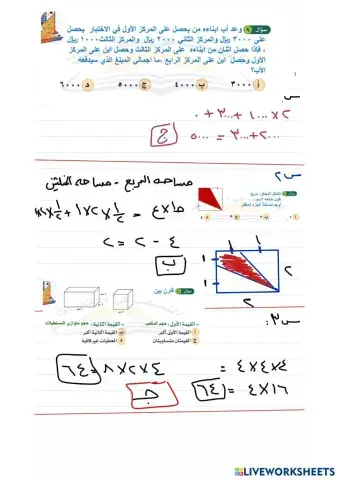 سؤال ١ وعد أب أبناءه من يحصل على المركز الأول في الاختبار يحصل
على ٣٠٠٠ ريال والمركز الثاني ٢٠٠٠ ريال والمركز الثالث ١٠٠٠ ريال
، فإذا حصل اثنان من أبناءه على المركز الثالث وحصل ابن على المركز
الأول وحصل ابن على المركز الرابع ،ما اجمالي المبلغ الذي سيدفعه
الأب؟
أ ٣٠٠٠ ب ٤٠٠٠ ج ٥٠٠٠ د ٦٠٠٠
٢×١٠٠٠ + ٣٠٠٠ + ٠
٢٠٠٠+٣٠٠٠ = ٥٠٠٠
ج
س٢
مساحة المربع - مساحة المثلثين
سؤال
الشكل المجاور مربع
٤ - ٢ = ٢
ب
١ ١
١
١
٢
٢
سؤال ٣ قارن بين
س٣:
- القيمة الأولى: حجم المكعب
- القيمة الثانية: حجم متوازي المستطيلات
أ القيمة الأولى أكبر
ب القيمة الثانية أكبر
ج القيمتان متساويتان
د المعطيات غير كافية
٤×٤×٤ =
٤×١٦ = ٦٤
٨×٢×٤ = ٦٤
ج
LIVEWORKSHEETS